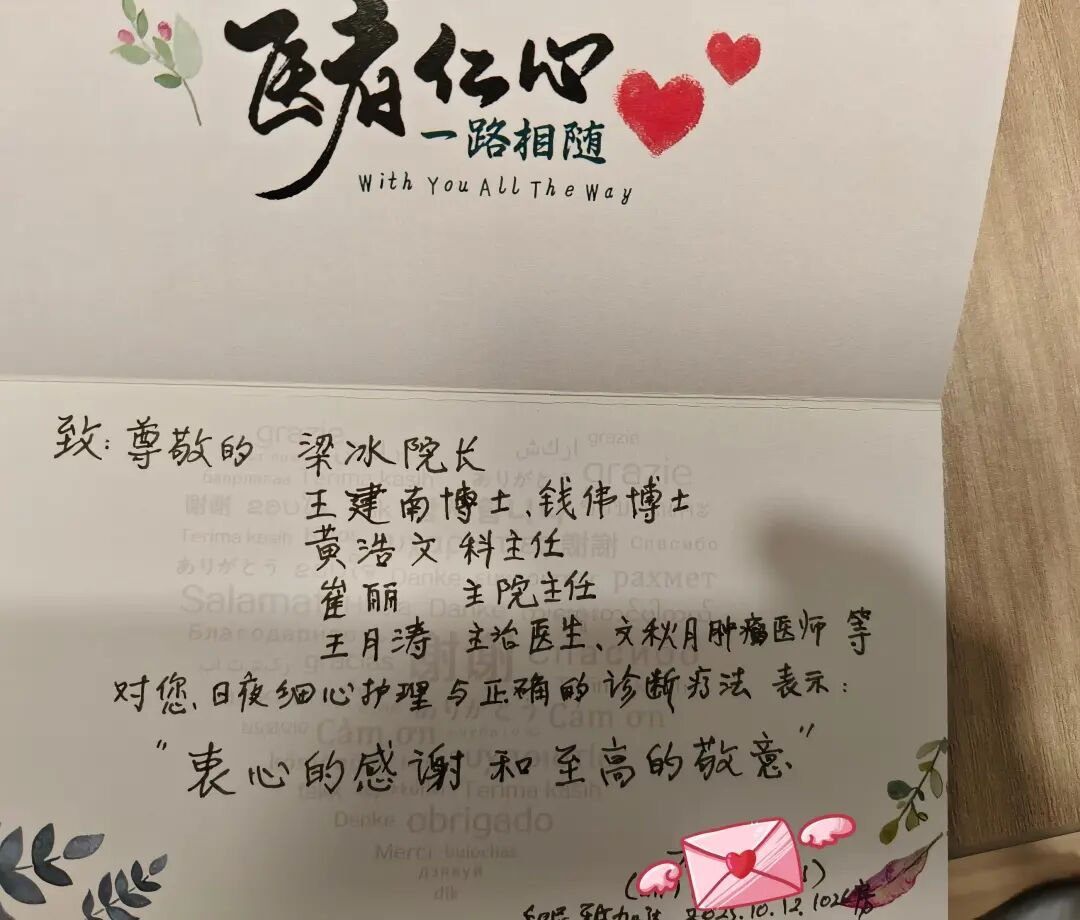 医者仁心
一路相随
With You All The Way
致：尊敬的 梁冰院长
王建南博士、钱伟博士
黄浩文 科主任
崔丽 主院主任
王月涛 主治医生、文秋月肿瘤医师 等
对您、日夜细心护理与正确的诊断疗法 表示：
“衷心的感谢和至高的敬意”
grazie
grazie
ありがとう
grazie
Terima kasih
謝謝
Terima kasih
謝謝
Спасибо
ありがとう
Danke
рахмет
Salamat
Danke
Благодарно
gracias
謝謝
Спасибо
ありがとう
Cảm ơn
Cảm ơn
Terima kasih
Danke obrigado
Merci
дзякуй
dík
2023.10.12. 1026房